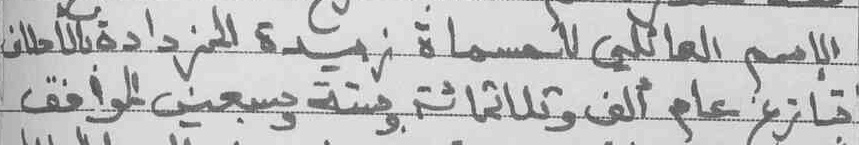 الاسم العائلي لأمسماة زهيدة المزدادة بالأطلان
قازغ عام ألف وثلاثمائة وستة وسبعين الموافق